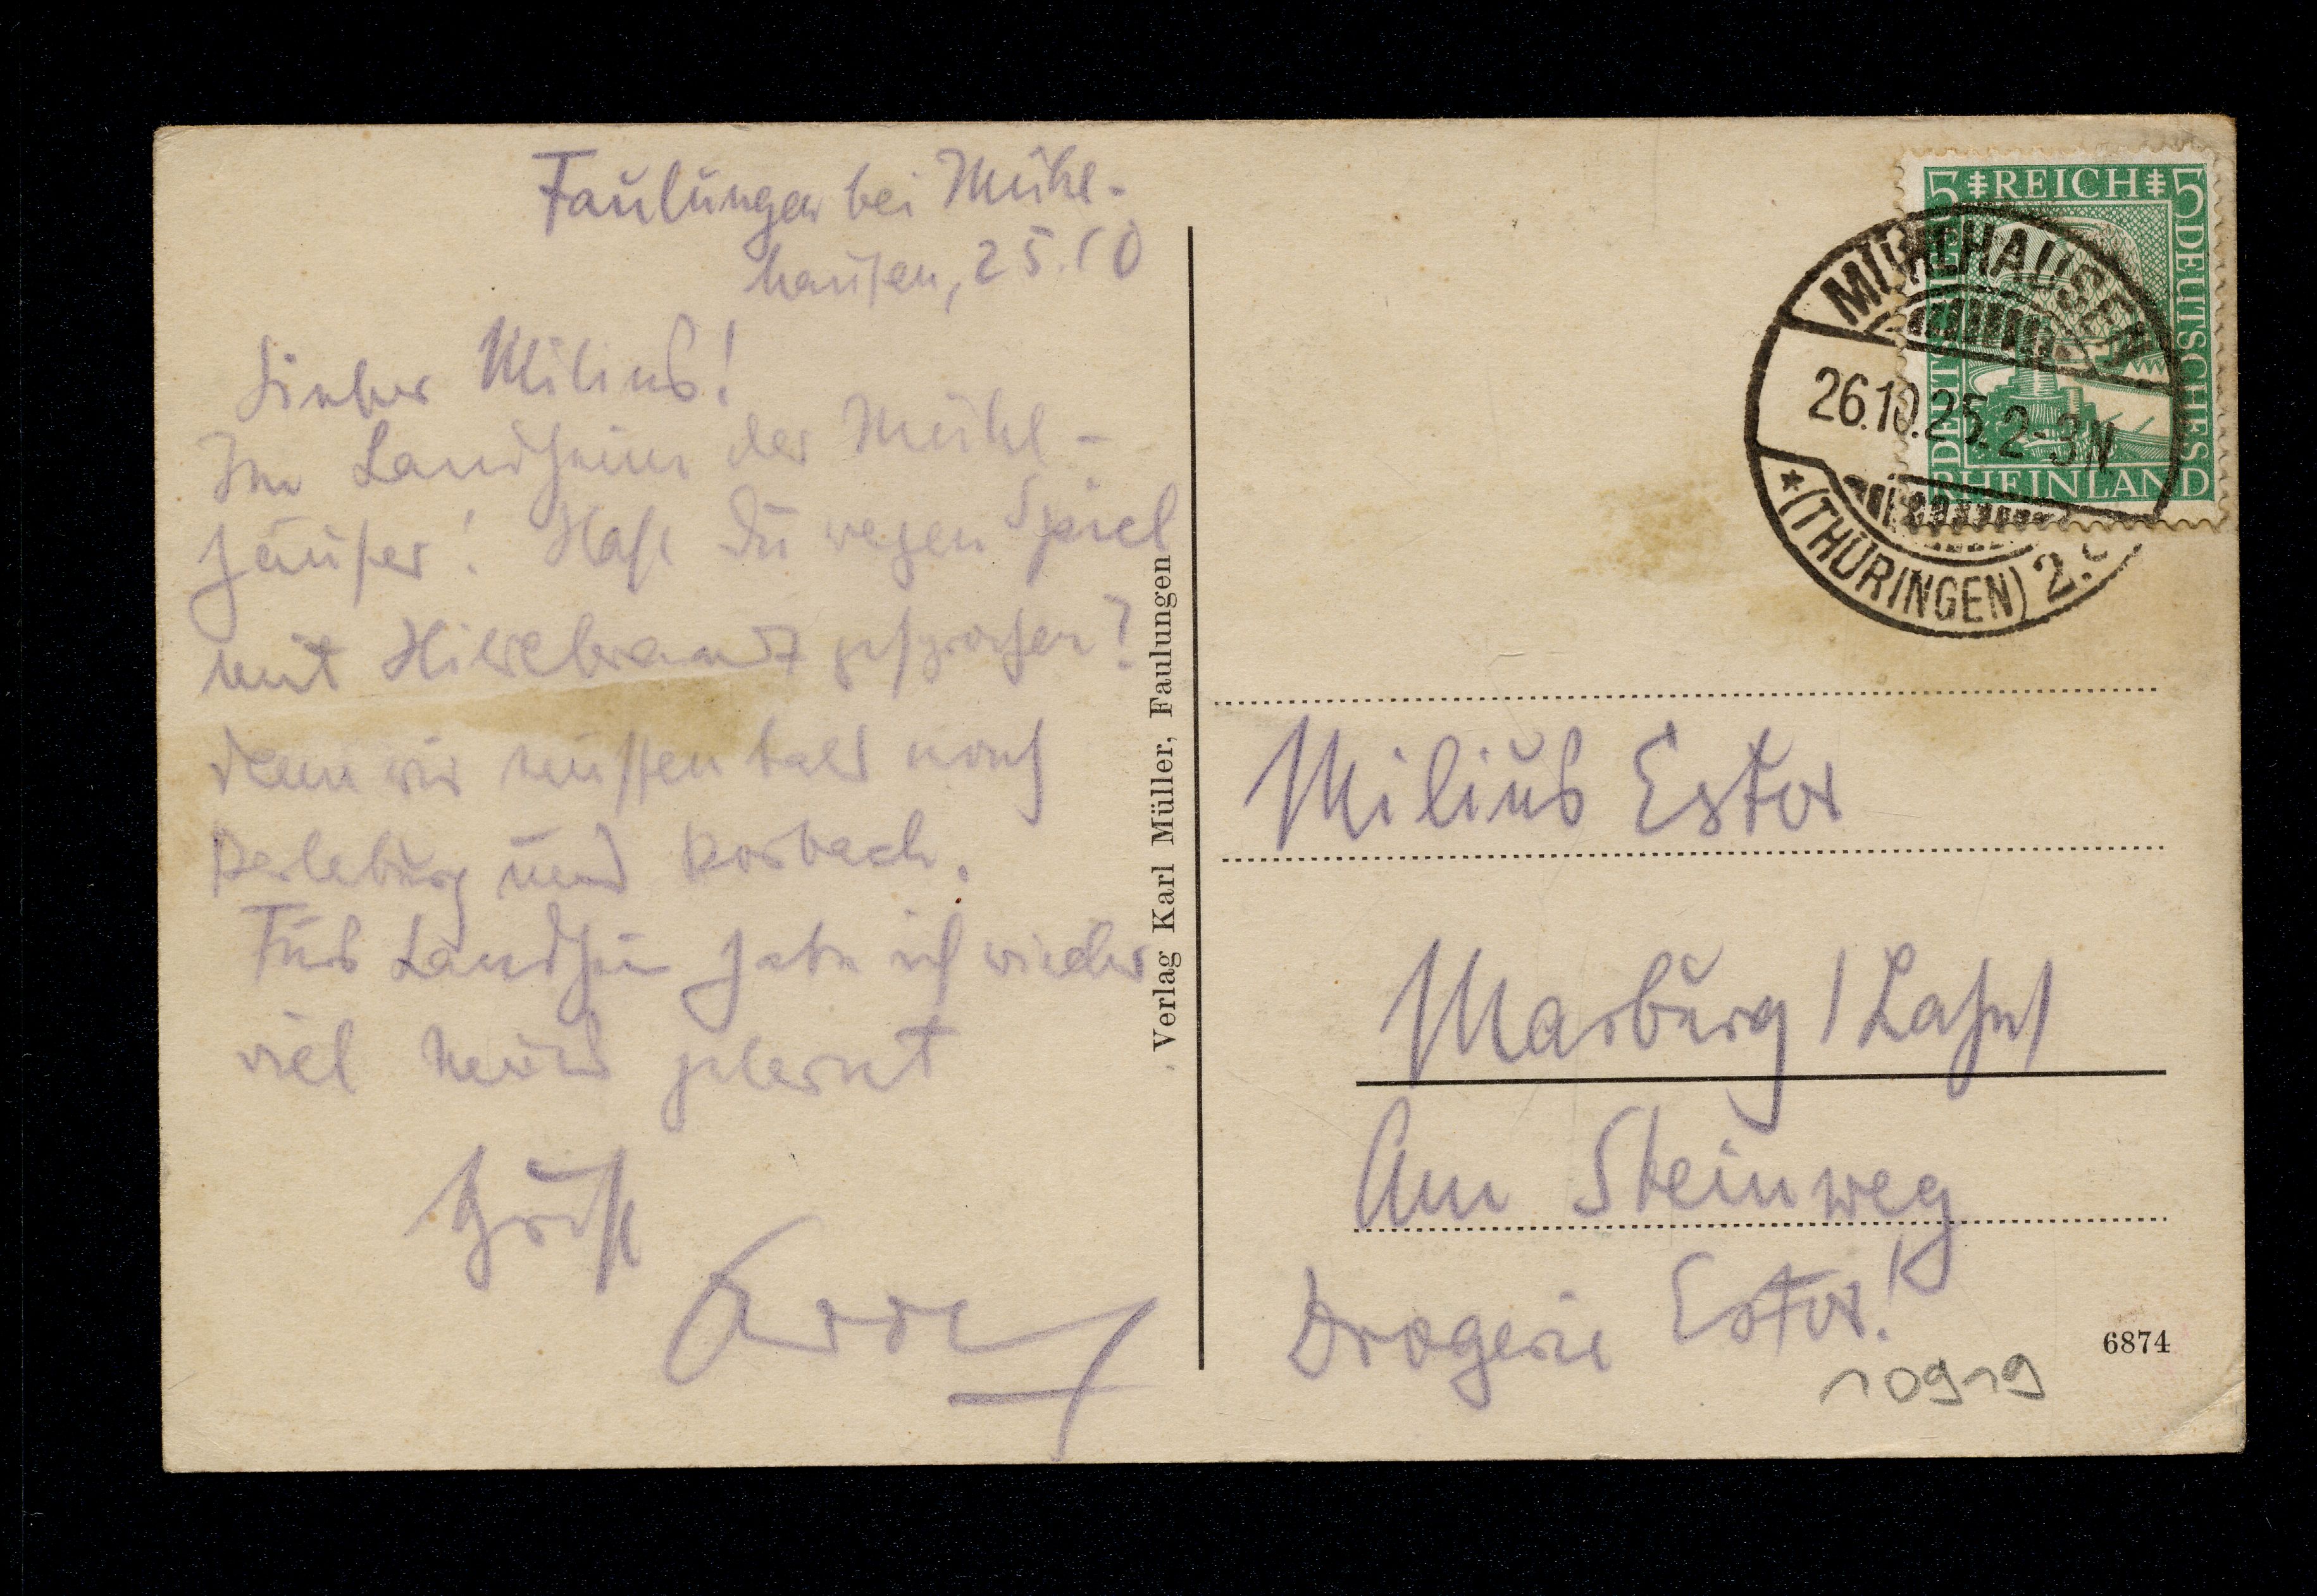 Faulungen bei Mühl-
hausen, 25.10
Lieber Milius!
Im Landheim der Mühl-
häuser! Hast Du wegen Spiel
mit Hildebrandt gesprochen?
denn wir müssen bald nach
Berleburg und Korbach.
Fürs Landheim habe ich wieder
viel neues gelernt
Gruß
Verlag Karl Müller, Faulungen
5 REICH 5
DEUTSCHES
DEUTSCHES
RHEINLAND
MÜHLHAUSEN
26.10.25. 2-3N
* (THÜRINGEN) 2.
Milius Estor
Marburg / Lahn
Am Steinweg
Drogerie Estor!
6874
10919